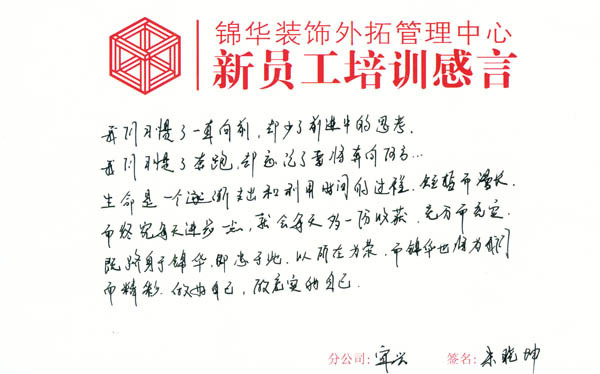 锦华装饰外拓管理中心
新员工培训感言
我们习惯了一直向前,却少了前进中的思考.
我们习惯了奔跑,却忘了要将奔向何方…
生命是一个逐渐支出和利用时间的过程.短暂而漫长.
而终究每天进步一点,就会每天多一份收获,充分而充实.
既跻身于锦华.即忠于此.以所在为荣.而锦华也将为我们
而精彩.做好自己,做充实的自己.
分公司: 宜兴 签名: 朱晓坤